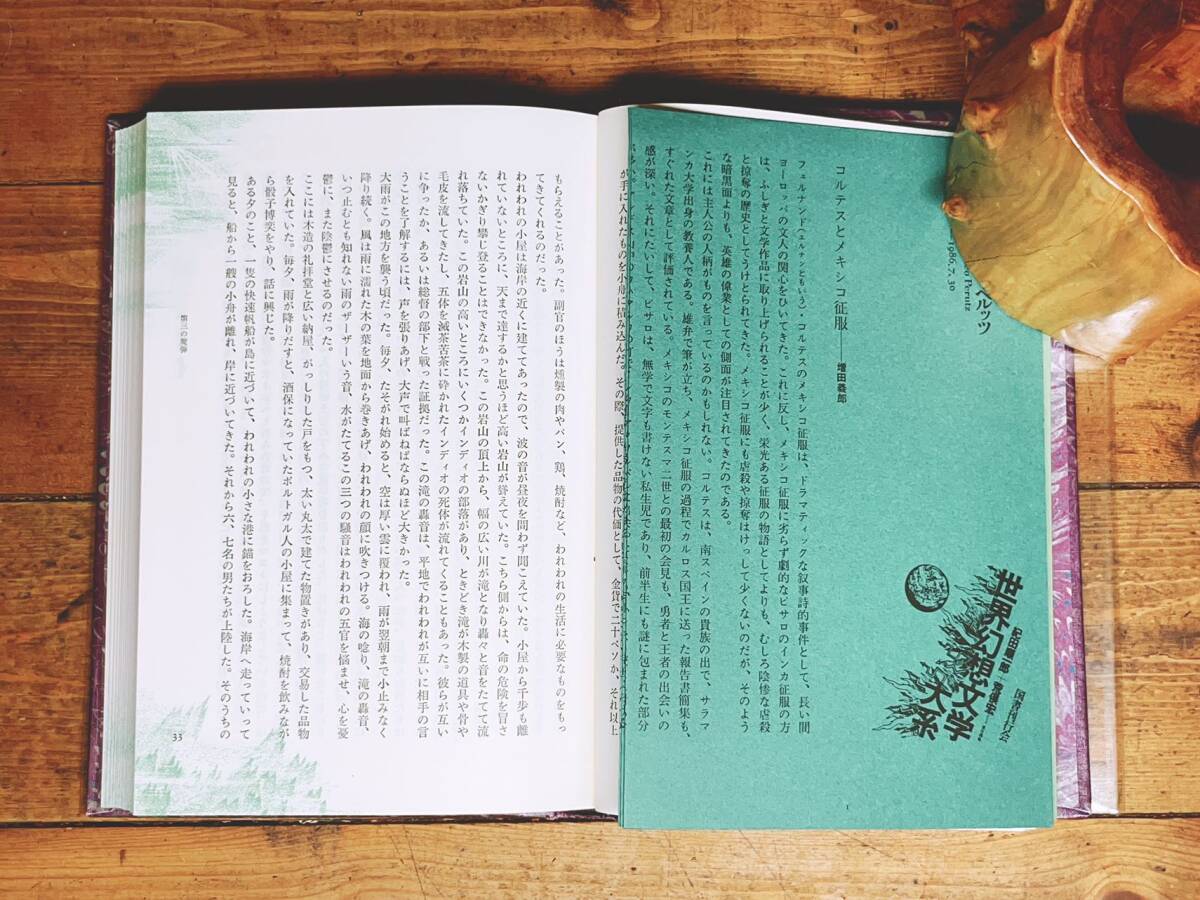 国書刊行会
紀田順一郎
世界幻想文学大系
ルッツ
Perutz
1986.7.30
コルテスとメキシコ征服——増田義郎
フェルナンド（エルナンともいう）・コルテスのメキシコ征服は、ドラマティックな叙事詩的事件として、長い間
ヨーロッパの文人の関心をひいてきた。これに反し、メキシコ征服に劣らず劇的なピサロのインカ征服の方
は、ふしぎと文学作品に取り上げられることが少く、栄光ある征服の物語としてよりも、むしろ陰惨な虐殺
と掠奪の歴史としてうけとられてきた。メキシコ征服にも虐殺や掠奪はけっして少くないのだが、そのよう
な暗黒面よりも、英雄の偉業としての側面が注目されてきたのである。
これには主人公の人柄がものを言っているのかもしれない。コルテスは、南スペインの貴族の出で、サラマ
ンカ大学出身の教養人である。雄弁で筆が立ち、メキシコ征服の過程でカルロス国王に送った報告書簡集も、
すぐれた文章として評価されている。メキシコのモンテスマ二世との最初の会見も、勇者と王者の出会いの
感が深い。それにたいして、ピサロは、無学で文字も書けない私生児であり、前半生にも謎に包まれた部分
1
が手に入れたものを小舟に積み込んだ。その際、提供した品物の代価として、金貨で二十ペソか、それ以上
もらえることがあった。副官のほうは燻製の肉やパン、鶏、焼酎など、われわれの生活に必要なものをもっ
てきてくれるのだった。
われわれの小屋は海岸の近くに建ててあったので、波の音が昼夜を問わず聞こえていた。小屋から千歩も離
れていないところに、天まで達するかと思うほど高い岩山が聳えていた。こちら側からは、命の危険を冒さ
ないかぎり攀じ登ることはできなかった。この岩山の頂上から、幅の広い川が滝となり轟々と音をたてて流
れ落ちていた。この岩山の高いところにいくつかインディオの部落があり、ときどき滝が木製の道具や骨や
毛皮を流してきたし、五体を滅茶苦茶に砕かれたインディオの死体が流れてくることもあった。彼らが互い
に争ったか、あるいは総督の部下と戦った証拠だった。この滝の轟音は、平地でわれわれが互いに相手の言
うことを了解するには、声を張りあげ、大声で叫ばねばならぬほど大きかった。
大雨がこの地方を襲う頃だった。毎夕、たそがれ始めると、空は厚い雲に覆われ、雨が翌朝まで小止みなく
降り続く。風は雨に濡れた木の葉を地面から巻きあげ、われわれの顔に吹きつける。海の唸り、滝の轟音、
いつ止むとも知れない雨のザーザーいう音、水がたてるこの三つの騒音はわれわれの五官を悩ませ、心を憂
鬱に、また陰鬱にさせるのだった。
ここには木造の礼拝堂と広い納屋、がっしりした戸をもつ、太い丸太で建てた物置きがあり、交易した品物
を入れていた。毎夕、雨が降りだすと、酒保になっていたポルトガル人の小屋に集まって、焼酎を飲みなが
ら骰子博奕をやり、話に興じた。
ある夕のこと、一隻の快速帆船が島に近づいて、われわれの小さな港に錨をおろした。海岸へ走っていって
見ると、船から一艘の小舟が離れ、岸に近づいてきた。それから六、七名の男たちが上陸した。そのうちの
第三の魔弾
33